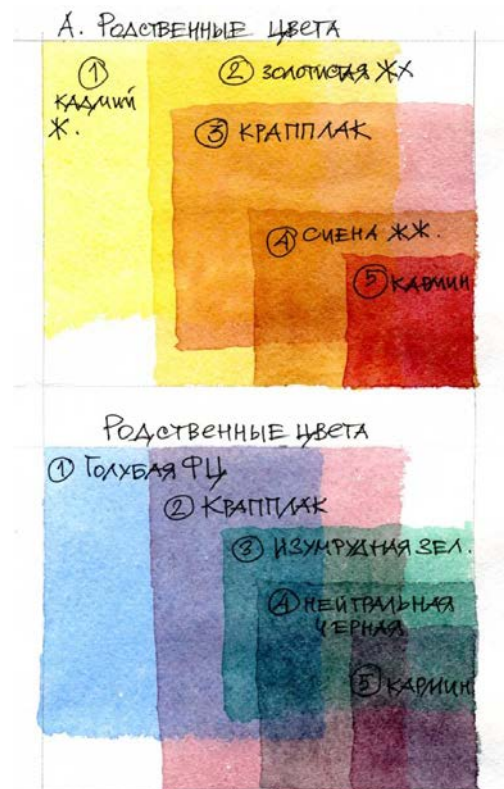 А. Родственные цвета
① кадмий
ж.
② золотистая ЖХ
③ краплак
④ сиена ЖЖ.
⑤ кармин
Родственные цвета
① Голубая ФЦ
② Краплак
③ изумрудная зел.
④ нейтральная
черная
⑤ кармин